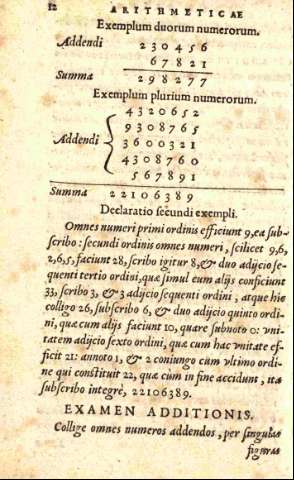 12 ARITHMETICAE
Exemplum duorum numerorum.
Addendi 230456
67821
Summa 298277
Exemplum plurium numerorum.
4320652
9308765
Addendi 3600321
4308760
567891
Summa 22106389
Declaratio ſecundi exempli.
Omnes numeri primi ordinis efficiunt 9, ea ſub-
ſcribo: ſecundi ordinis omnes numeri, ſcilicet 9,6,
2,6,5, faciunt 28, ſcribo igitur 8, & duo adijcio ſe-
quenti tertio ordini, quæ ſimul cum alijs conficiunt
33, ſcribo 3, & 3 adijcio ſequenti ordini, atque hic
colligo 26, ſubſcribo 6, & duo adijcio quinto ordi-
ni, quæ cum alijs faciunt 10, quare ſubnoto 0: vni-
tatem adijcio ſexto ordini, quæ cum hac vnitate ef-
ficit 21: annoto 1, & 2 coniungo cum vltimo ordi-
ne qui conſtituit 22, quæ cùm in fine accidunt, ita
ſubſcribo integrè, 22106389.
EXAMEN ADDITIONIS.
Collige omnes numeros addendos, per ſingulas
figuras